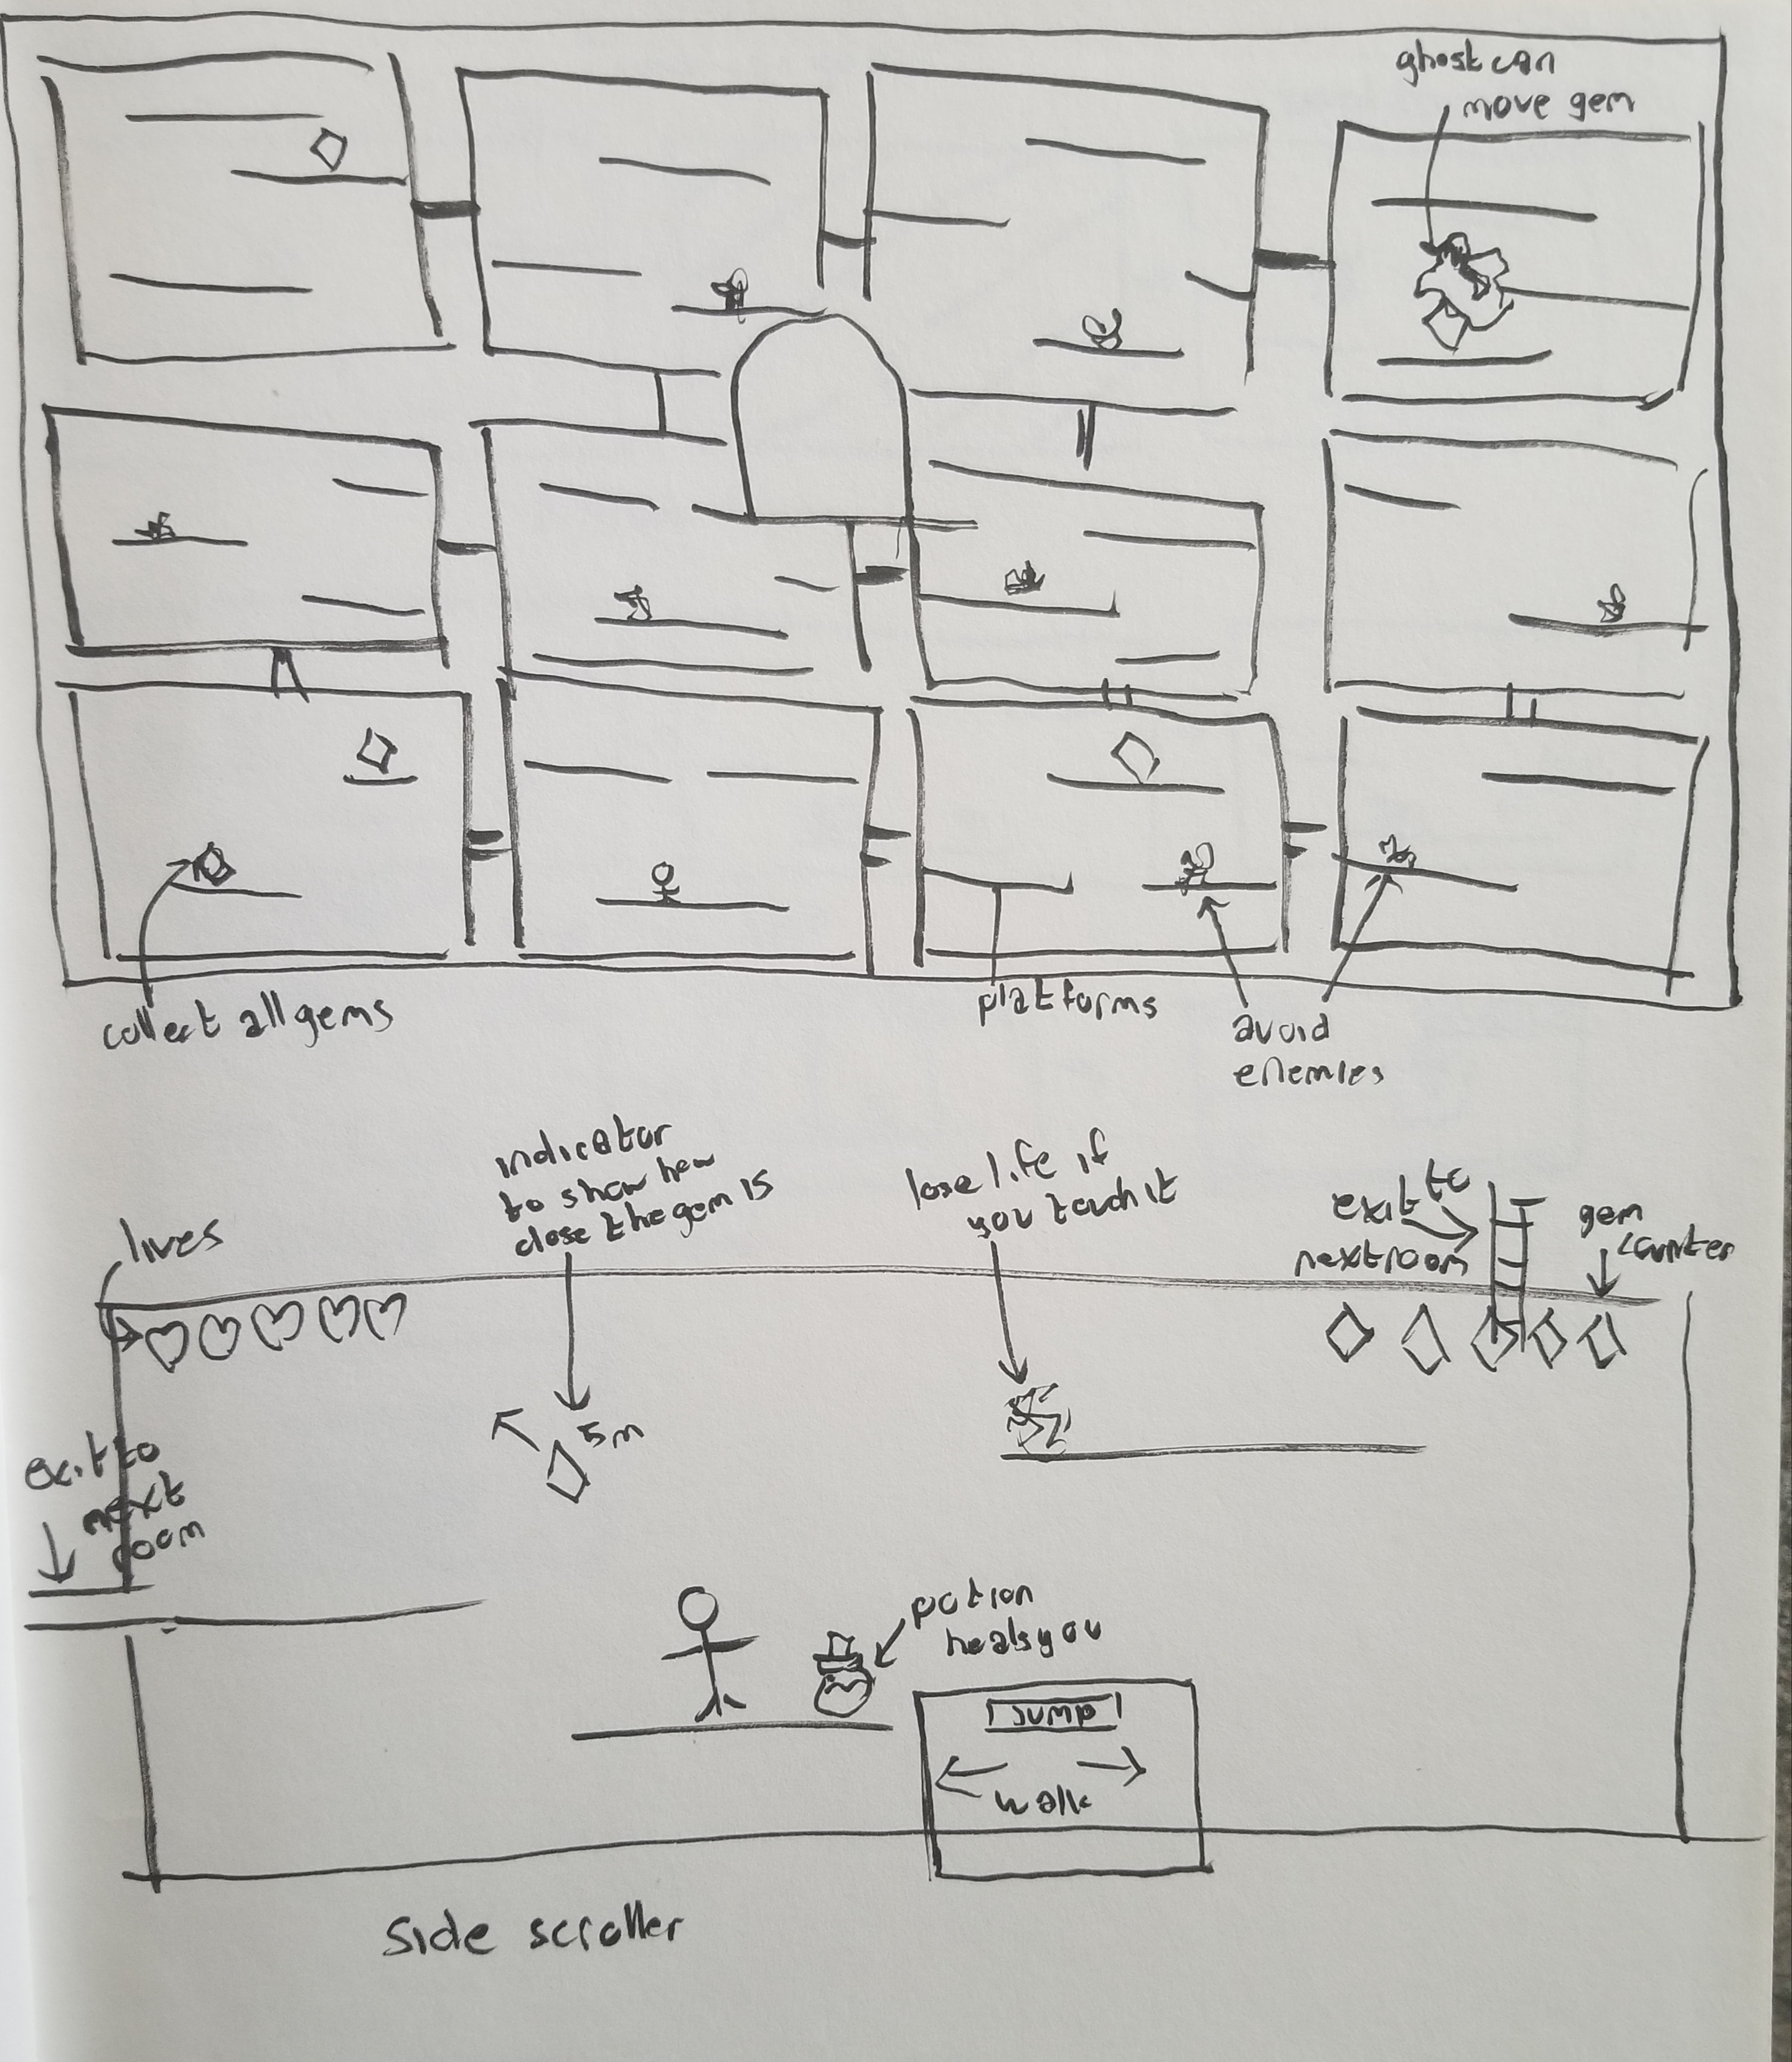 ghost can
move gem
collect all gems
platforms
avoid
enemies
indicator
to show how
close the gem is
lose life if
you touch it
exit to
next room
gem
counter
lives
5m
exit to
next
room
potion
heals you
Jump
walk
Side scroller